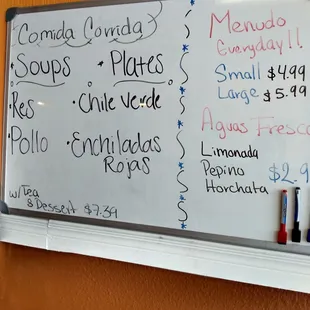 Comida Corrida
• Soups
• Plates
• Res
• Chile Verde
• Pollo
• Enchiladas
Rojas
w/Tea
& Dessert $7.39
Menudo
Everyday!!
Small $4.99
Large $5.99
Aguas Fresca
Limonada
Pepino
Horchata
$2.9